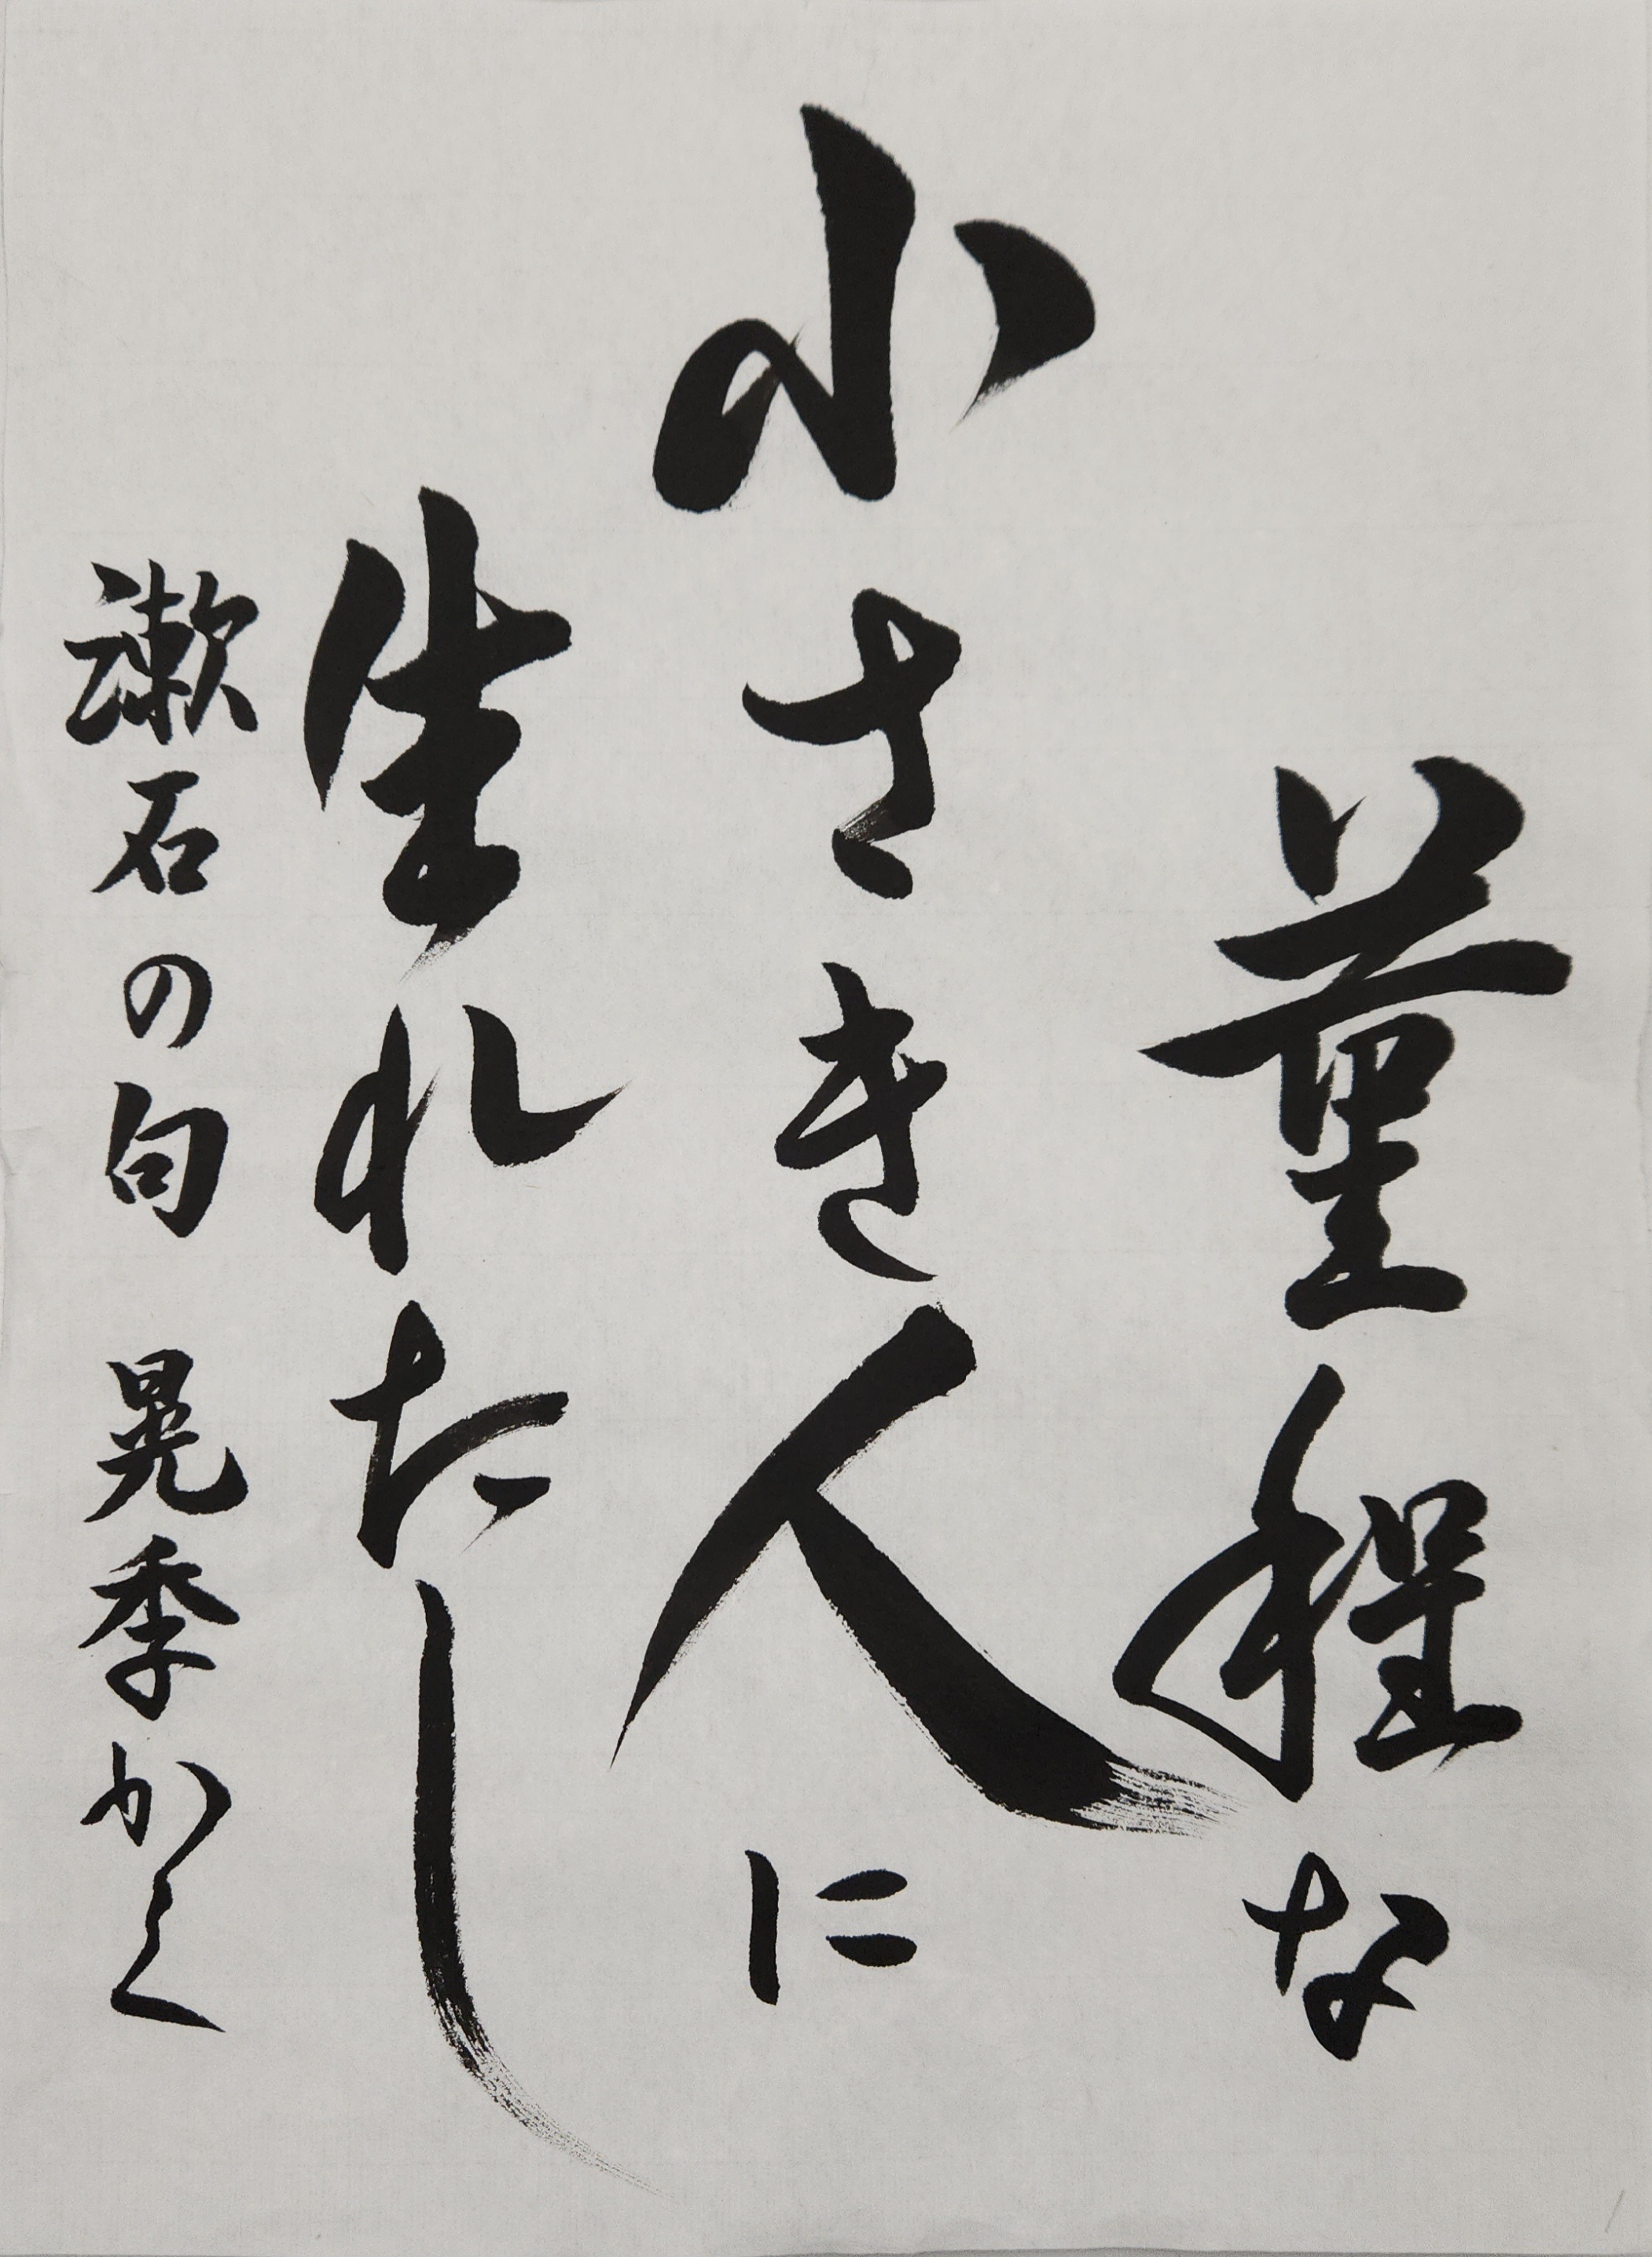 菫程な
小さき人に
生れたし
漱石の句 晃季かく